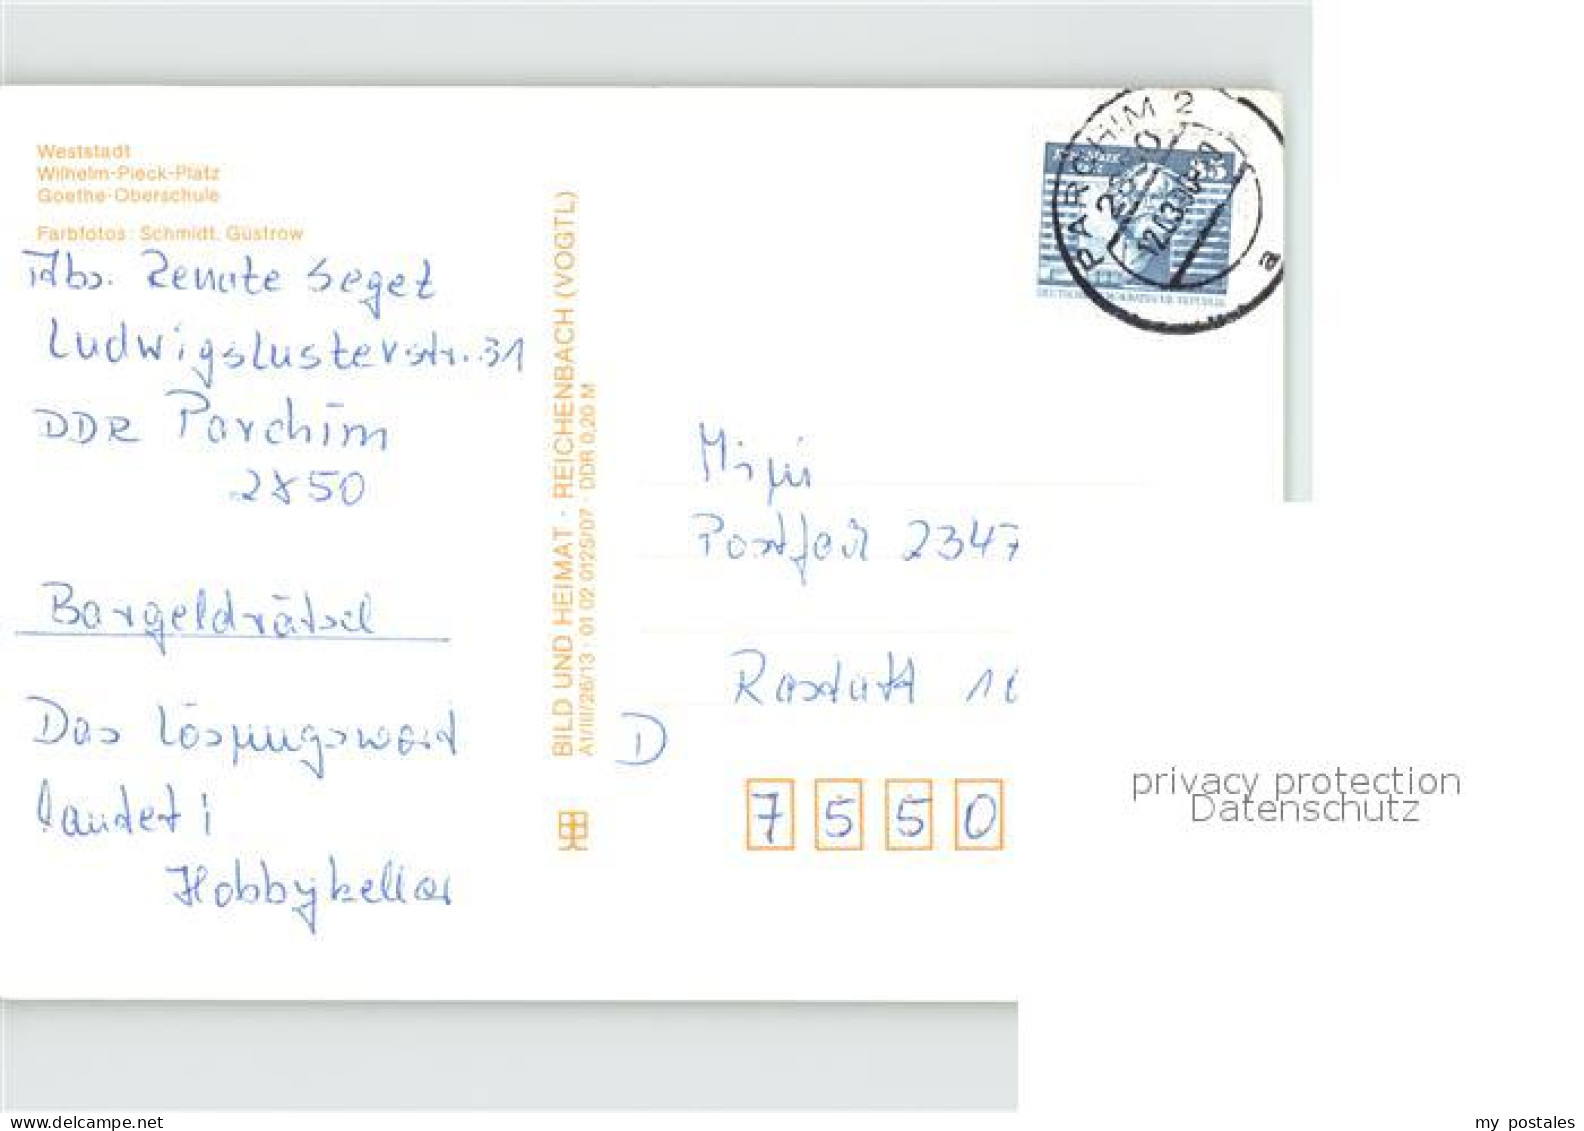 Weststadt
Wilhelm-Pieck-Platz
Goethe-Oberschule
Farbfotos: Schmidt, Güstrow
Abs. Renate Seget
Ludwigslusterstr. 31
DDR Parchim
2850
Bargeldrätsel
Das Lösungswort
lautet:
Hobbykeller
BILD UND HEIMAT · REICHENBACH (VOGTL)
A1/III/26/13 · 01 02 0125/07 · DDR 0,20 M
PARCHIM 2
2850
12.03.90
a
DEUTSCHE DEMOKRATISCHE REPUBLIK
Postfach 2347
Rastatt
D
7550
privacy protection
Datenschutz
my postales